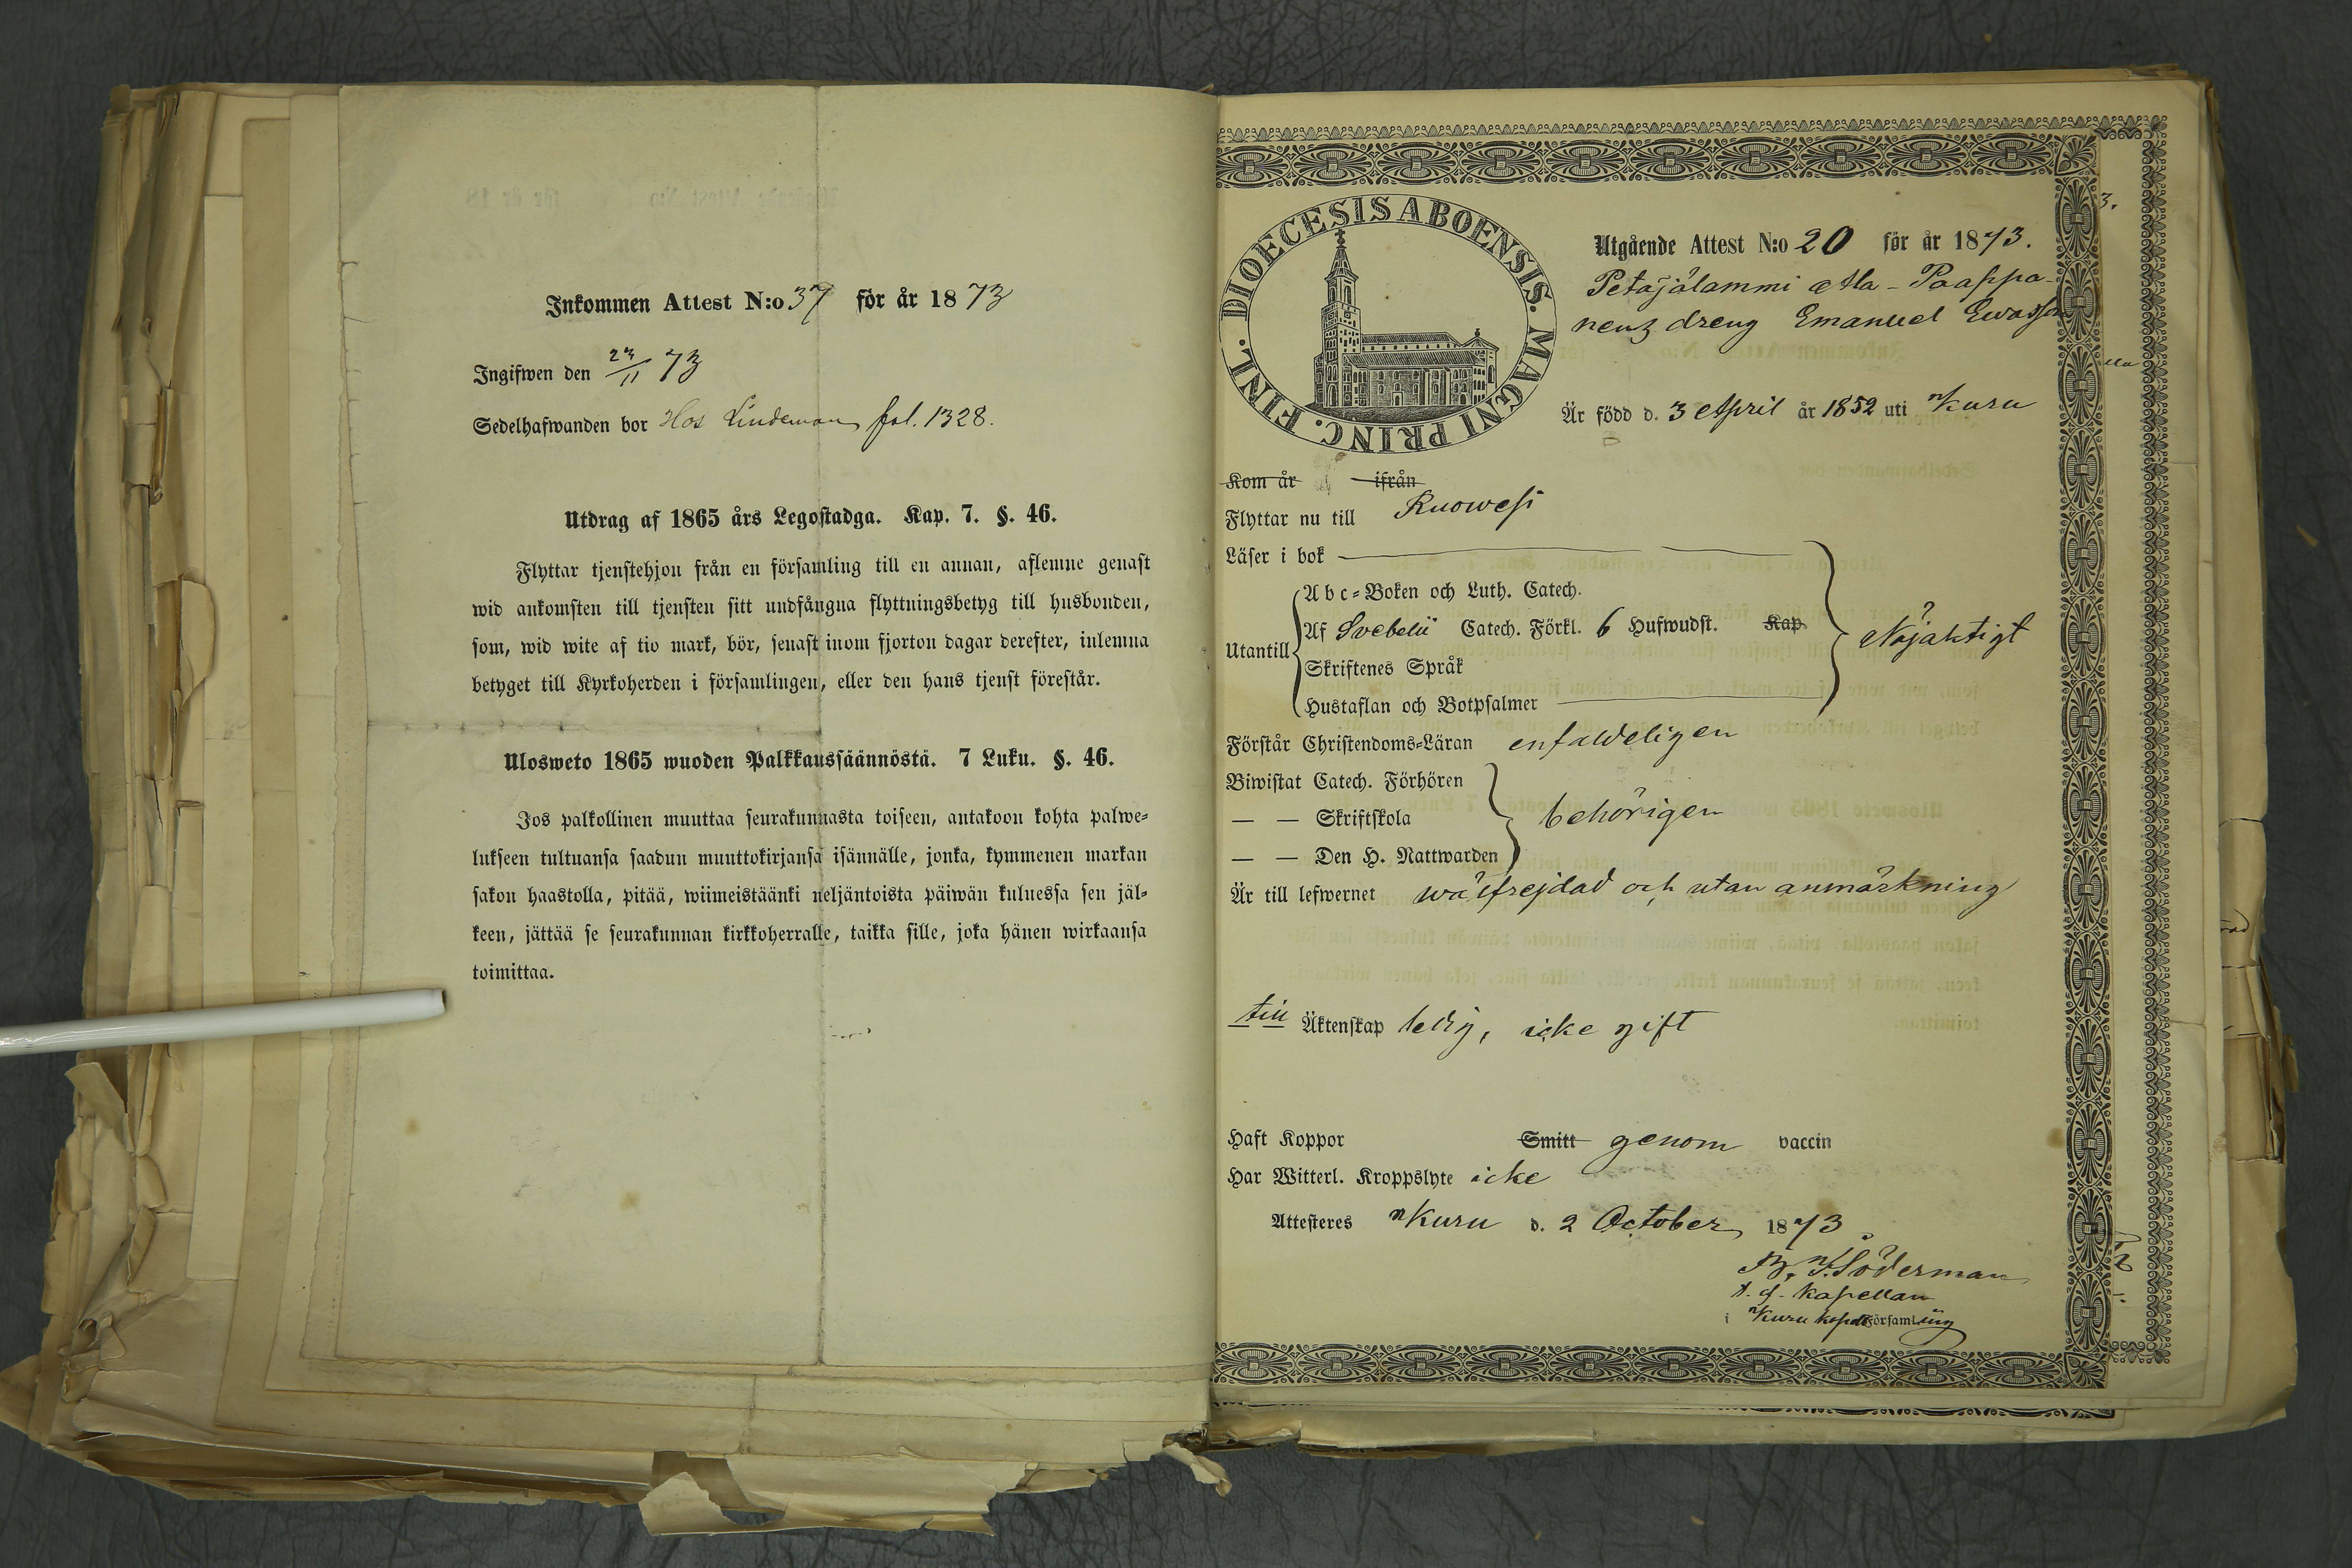 Inkommen Attest N:o 37 för år 1873
Ingifwen den 23/11 73
Sedelhafwanden bor Hos Lindeman fol. 1328.
Utdrag af 1865 års Legostadga. Kap. 7. §. 46.
Flyttar tjenstehjon från en församling till en annan, aflemne genast
wid ankomsten till tjensten sitt undfångna flyttningsbetyg till husbonden,
som, wid wite af tio mark, bör, senast inom fjorton dagar derefter, inlemna
betyget till Kyrkoherden i församlingen, eller den hans tjenst förestår.
Ulosweto 1865 wuoden Palkkaussäännöstä. 7 Luku. §. 46.
Jos palkollinen muuttaa seurakunnasta toiseen, antakoon kohta palwe-
lukseen tultuansa saadun muuttokirjansa isännälle, jonka, kymmenen markan
sakon haastolla, pitää, wiimeistäänki neljäntoista päiwän kuluessa sen jäl-
keen, jättää se seurakunnan kirkkoherralle, taikka sille, joka hänen wirkaansa
toimittaa.
DIOECESIS ABOENSIS. MAGNI PRINC. FINL.
Utgående Attest N:o 20 för år 1873.
Petäjälammi Ala-Paappa-
nens dreng Emanuel Ewasson
Är född d. 3 April år 1852 uti Kuru
Kom år ifrån
Flyttar nu till Ruowesi
Läser i bok
Abc-Boken och Luth. Catech.
Utantill Af Svebelii Catech. Förkl. 6 Hufwudst. Kap.
Skriftenes Språk
Hustaflan och Botpsalmer
Nöjaktigt
Förstår Christendoms-Läran enfaldeligen
Biwistat Catech. Förhören
— — Skriftskola behörigen
— — Den H. Nattwarden
Är till lefwernet wälfrejdad och utan anmärkning
till Äktenskap ledig, icke gift
Haft Koppor Smitt genom vaccin
Har Witterl. Kroppslyte icke
Attesteres Kuru d. 2 October 1873
Söderman
t. f. Kapellan
i Kuru kapell Församling